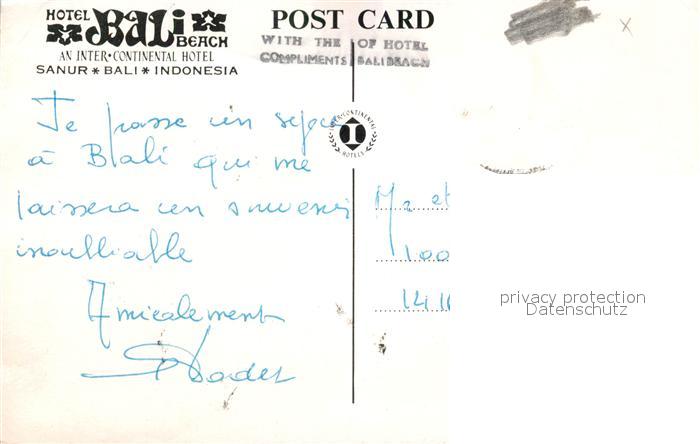 HOTEL BALI BEACH
AN INTER·CONTINENTAL HOTEL
SANUR * BALI * INDONESIA
POST CARD
WITH THE COMPLIMENTS OF HOTEL BALI BEACH
INTER·CONTINENTAL HOTELS
I
Je passe un séjour
à Bali qui me
laissera un souvenir
inoubliable
Amicalement
Mr et
100
1411
privacy protection
Datenschutz
x